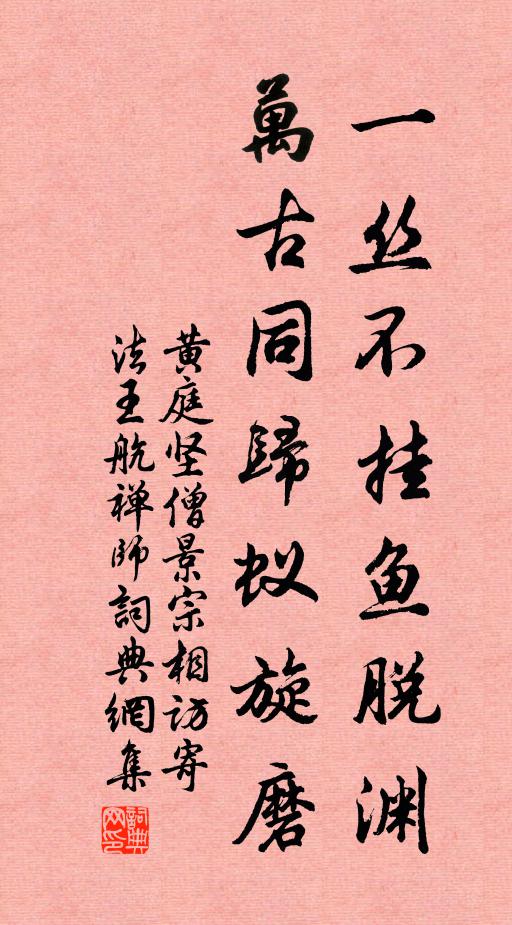 一丝不挂鱼脱渊
萬古同歸蚁旋磨
黄庭坚僧景宗相访寄
法王航禅師詞典網集
詞典网印